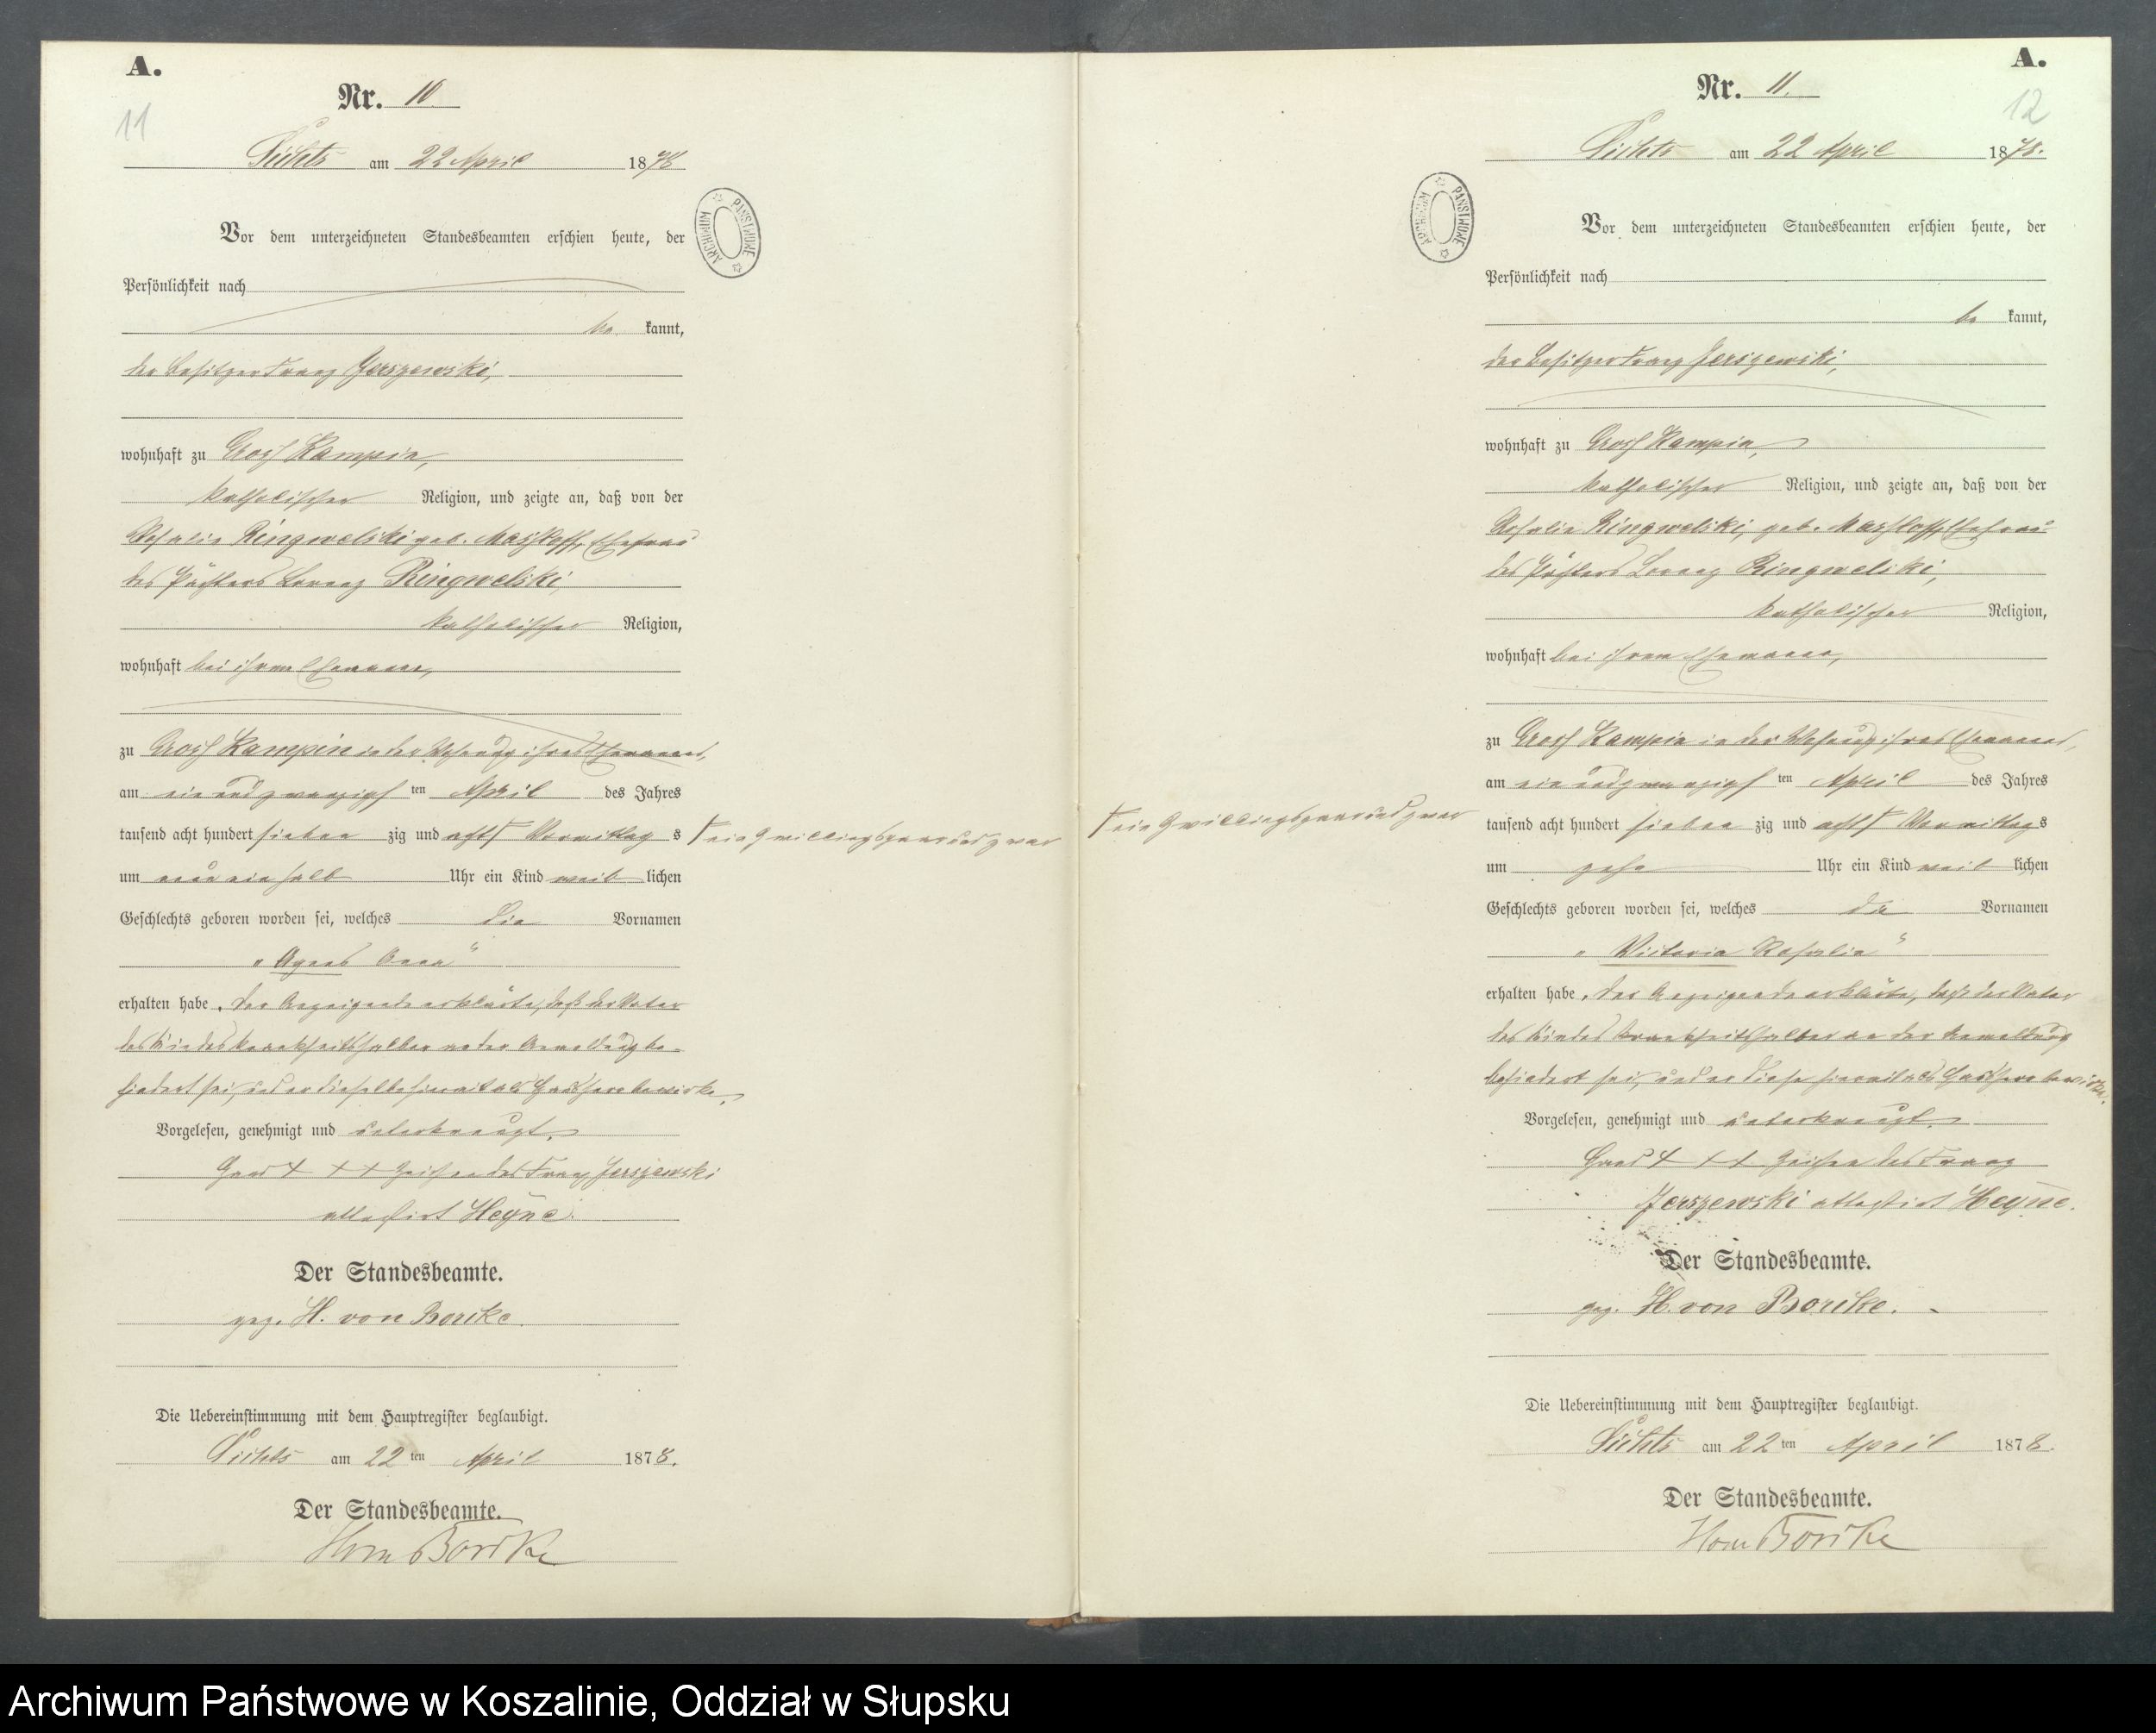 A.
11
Nr. 10
am 22 April 1878
ARCHIWUM PAŃSTWOWE
Vor dem unterzeichneten Standesbeamten erschien heute, der
Persönlichkeit nach
be kannt,
der Besitzer Franz Jerszewski,
wohnhaft zu Gross Kampin,
katholischer Religion, und zeigte an, daß von der
Rosalie Ringwelski geb. Ehefrau
des Pächters Lorenz Ringwelski,
katholischer Religion,
wohnhaft bei ihrem Ehemanne,
zu Gross Kampin in der Wohnung ihres Ehemannes,
am ein und zwanzigst ten April des Jahres
tausend acht hundert sieben zig und acht Γ Vormittag s
Γ ein Zwillingspaar und zwar
um neun ein halb Uhr ein Kind weib lichen
Geschlechts geboren worden sei, welches die Vornamen
„Agnes Anna“
erhalten habe. Der Anzeigende erklärte, daß der Vater
des Kindes krankheitshalber an der Anmeldung be-
hindert sei, und er dieselbe hiermit als bewirke.
Vorgelesen, genehmigt und unterkreuzt.
+ + + Zeichen des Franz Jerszewski
attestirt Heyne.
Der Standesbeamte.
gez. H. von Borcke.
Die Uebereinstimmung mit dem Hauptregister beglaubigt.
am 22 ten April 1878.
Der Standesbeamte.
H von Borcke
A.
12
Nr. 11.
am 22 April 1878.
ARCHIWUM PAŃSTWOWE
Vor dem unterzeichneten Standesbeamten erschien heute, der
Persönlichkeit nach
be kannt,
der Besitzer Franz Jerszewski,
wohnhaft zu Gross Kampin,
katholischer Religion, und zeigte an, daß von der
Rosalie Ringwelski, geb. Ehefrau
des Pächters Lorenz Ringwelski,
katholischer Religion,
wohnhaft bei ihrem Ehemanne,
zu Gross Kampin in der Wohnung ihres Ehemannes,
am ein und zwanzigst ten April des Jahres
Γ ein Zwillingspaar und zwar
tausend acht hundert sieben zig und acht Γ Vormittag s
um zehn Uhr ein Kind weib lichen
Geschlechts geboren worden sei, welches die Vornamen
„Victoria Rosalie“
erhalten habe. Der Anzeigende erklärte, daß der Vater
des Kindes krankheitshalber an der Anmeldung
behindert sei, und er diese hiermit als bewirke.
Vorgelesen, genehmigt und unterkreuzt.
+ + + Zeichen des Franz
Jerszewski attestirt Heyne.
Der Standesbeamte.
gez. H. von Borcke.
Die Uebereinstimmung mit dem Hauptregister beglaubigt.
am 22 ten April 1878.
Der Standesbeamte.
H von Borcke
Archiwum Państwowe w Koszalinie, Oddział w Słupsku